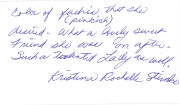 Color of fuchsia that she
(pinkish)
desired - What a lovely sweet
friend she was "on after-
Such a talented Lady as well.
Kristina Rochelle